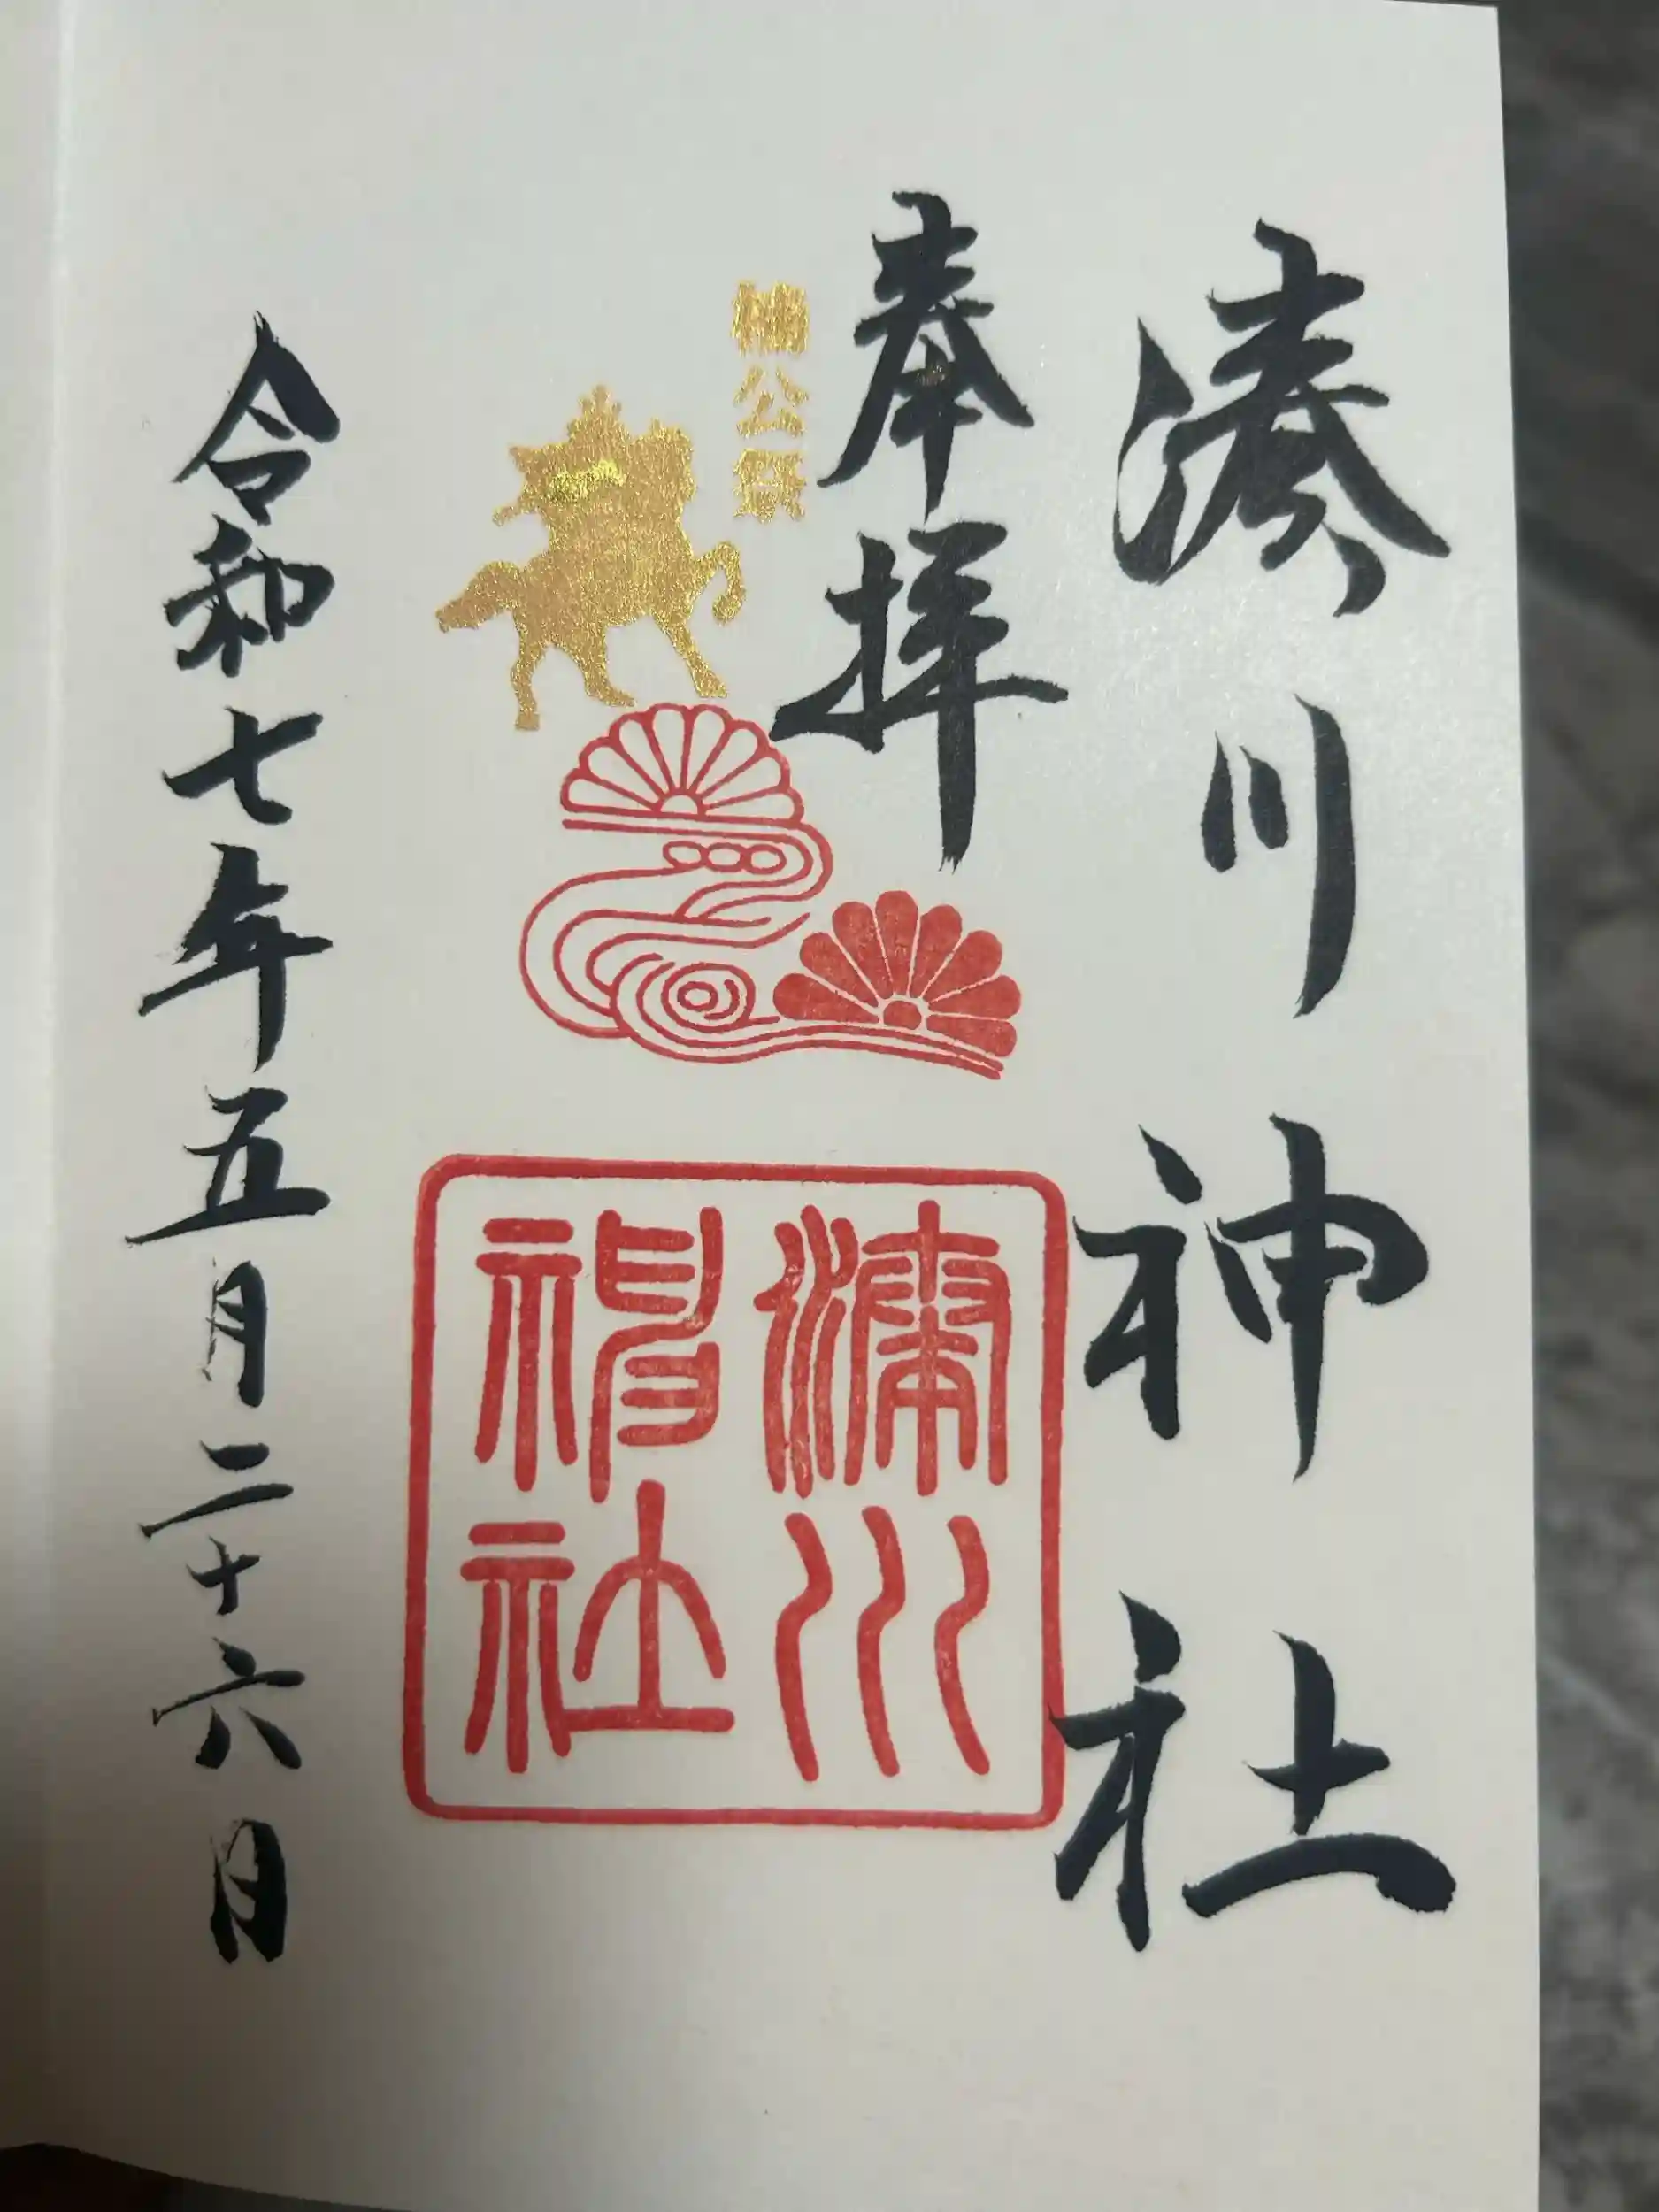 湊川神社
奉拝
楠公祭
湊川
神社
令和七年五月二十六日